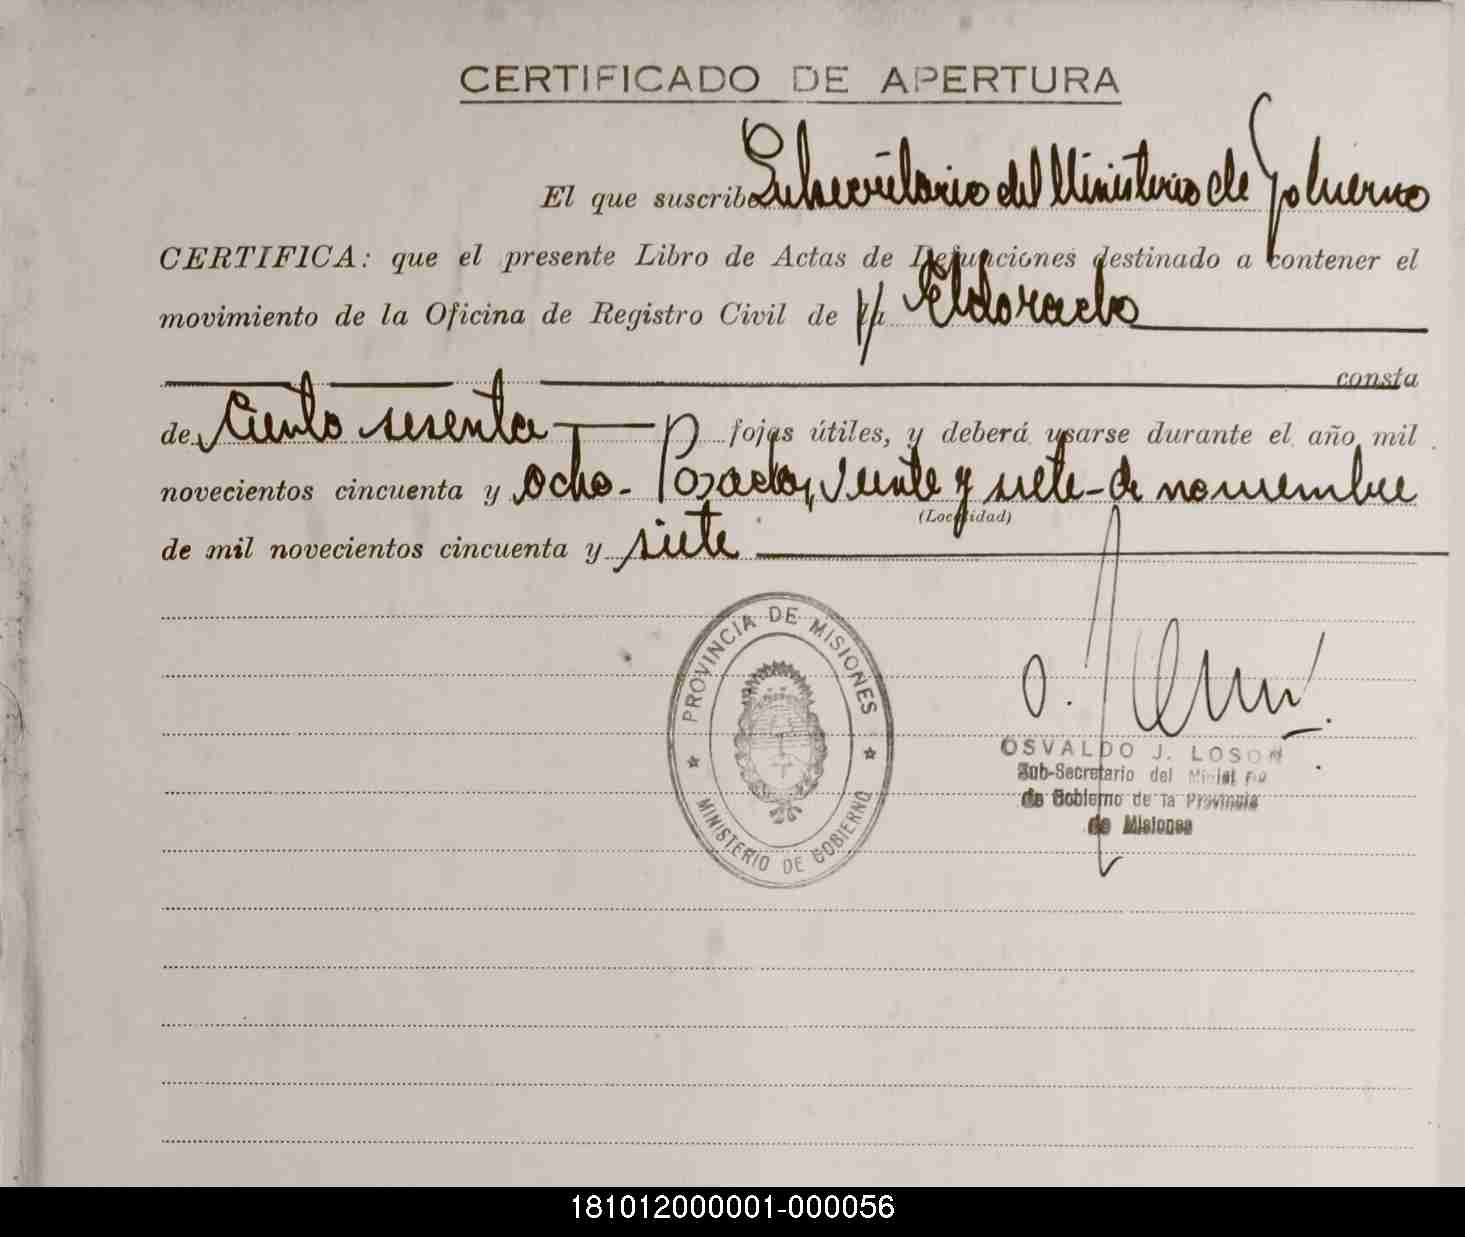 CERTIFICADO DE APERTURA
El que suscribe Subsecretario del Ministerio de Gobierno
CERTIFICA: que el presente Libro de Actas de Defunciones destinado a contener el
movimiento de la Oficina de Registro Civil de Eldorado
consta
de Ciento sesenta fojas útiles, y deberá usarse durante el año mil
novecientos cincuenta y ocho - Posadas, veinte y siete - de noviembre
(Localidad)
de mil novecientos cincuenta y siete
PROVINCIA DE MISIONES
MINISTERIO DE GOBIERNO
OSVALDO J. LOSON
Sub-Secretario del Ministerio
de Gobierno de la Provincia
de Misiones
181012000001-000056